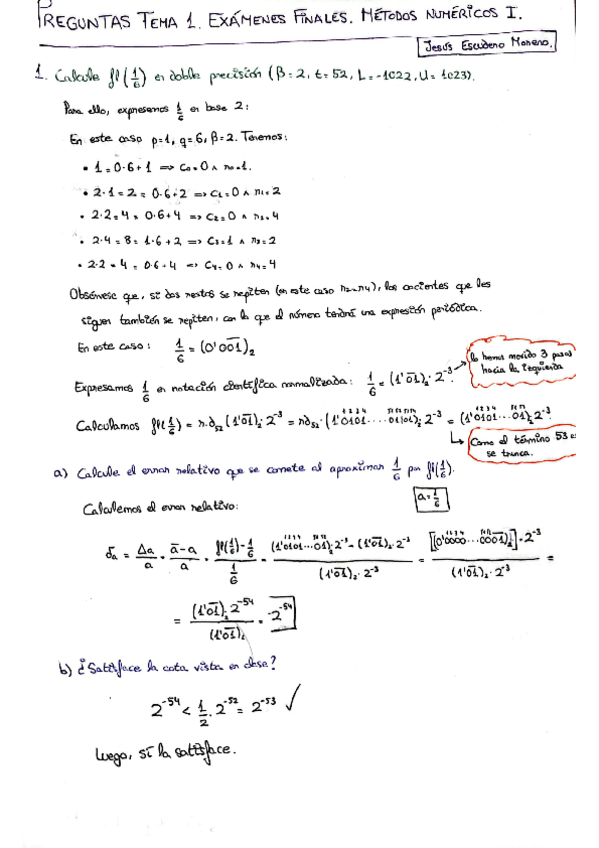 PREGUNTAS TEMA 1. EXÁMENES FINALES. MÉTODOS NUMÉRICOS I.
Jesús Escudero Moreno.
1. Calcule fl(1/6) en doble precisión (β=2, t=52, L=-1022, U=1023).
Para ello, expresamos 1/6 en base 2:
En este caso p=1, q=6, β=2. Tenemos:
• 1=0·6+1 => c₀=0 ∧ r₀=1.
• 2·1=2=0·6+2 => c₁=0 ∧ r₁=2
• 2·2=4=0·6+4 => c₂=0 ∧ r₂=4
• 2·4=8=1·6+2 => c₃=1 ∧ r₃=2
• 2·2=4=0·6+4 => c₄=0 ∧ r₄=4
Obsérvese que, si dos restos se repiten (en este caso r₂=r₄), los cocientes que les
siguen también se repiten, con lo que el número tendrá una expresión periódica.
En este caso: 1/6 = (0'00̅1̅)₂
lo hemos movido 3 pasos
hacia la izquierda
Expresamos 1/6 en notación científica normalizada: 1/6 = (1'0̅1̅)₂·2⁻³.
Calculamos fl(1/6) = r.d₅₂(1'0̅1̅)₂·2⁻³ = rd₅₂·(1'0101....0101)₂·2⁻³ = (1'0101...01)₂·2⁻³.
Como el término 53 es
se trunca.
a) Calcule el error relativo que se comete al aproximar 1/6 por fl(1/6).
Calculemos el error relativo:
a=1/6
δₐ = Δa/a = (a̅-a)/a = (fl(1/6)-1/6)/(1/6) = ((1'0101...01)₂·2⁻³-(1'0̅1̅)₂·2⁻³)/((1'0̅1̅)₂·2⁻³) = [[(0'0000...0001)₂]·2⁻³]/((1'0̅1̅)₂·2⁻³) =
= ((1'0̅1̅)₂·2⁻⁵⁴)/((1'0̅1̅)₂) = -2⁻⁵⁴
b) ¿Satisface la cota vista en clase?
2⁻⁵⁴ < 1/2·2⁻⁵² = 2⁻⁵³ ✓
Luego, sí la satisface.